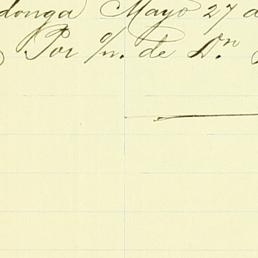 donga Mayo 27 d
Por o/n. de Dn